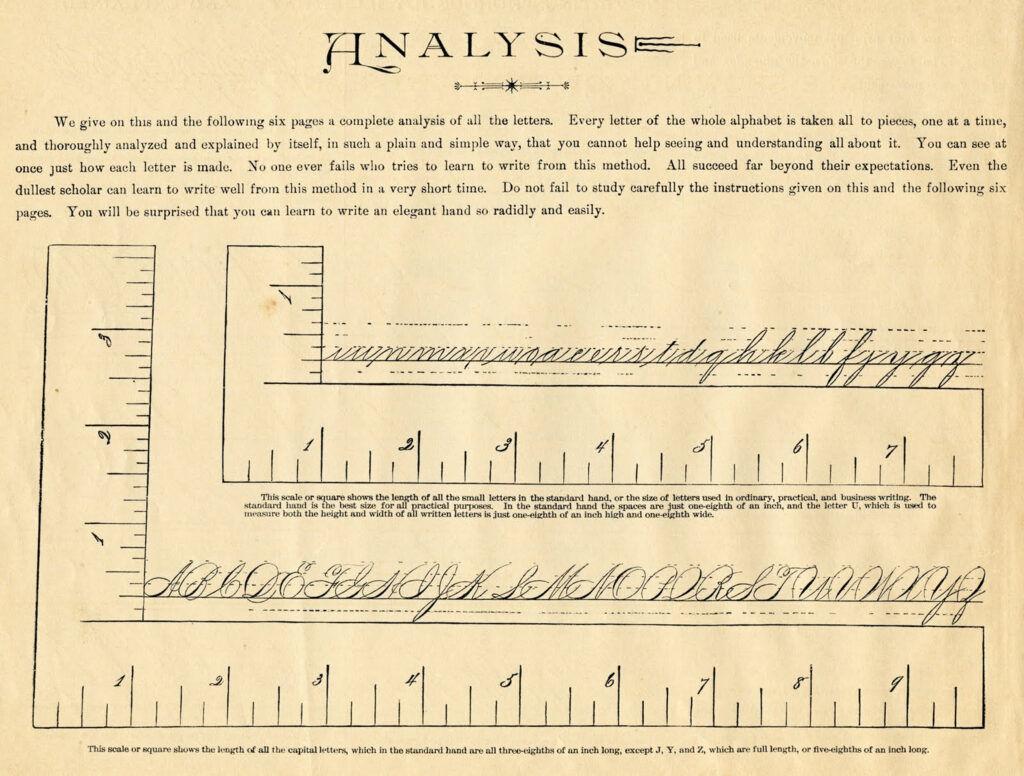 ANALYSIS
We give on this and the following six pages a complete analysis of all the letters. Every letter of the whole alphabet is taken all to pieces, one at a time,
and thoroughly analyzed and explained by itself, in such a plain and simple way, that you cannot help seeing and understanding all about it. You can see at
once just how each letter is made. No one ever fails who tries to learn to write from this method. All succeed far beyond their expectations. Even the
dullest scholar can learn to write well from this method in a very short time. Do not fail to study carefully the instructions given on this and the following six
pages. You will be surprised that you can learn to write an elegant hand so radidly and easily.
1
1 2 3 4 5 6 7
This scale or square shows the length of all the small letters in the standard hand, or the size of letters used in ordinary, practical, and business writing. The
standard hand is the best size for all practical purposes. In the standard hand the spaces are just one-eighth of an inch, and the letter U, which is used to
measure both the height and width of all written letters is just one-eighth of an inch high and one-eighth wide.
3
2
1
A B C D E F G H I J K L M N O P Q R S T U V W X Y Z
1 2 3 4 5 6 7 8 9
This scale or square shows the length of all the capital letters, which in the standard hand are all three-eighths of an inch long, except J, Y, and Z, which are full length, or five-eighths of an inch long.